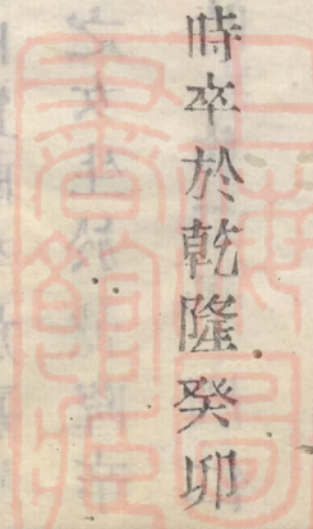 時卒於乾隆癸卯